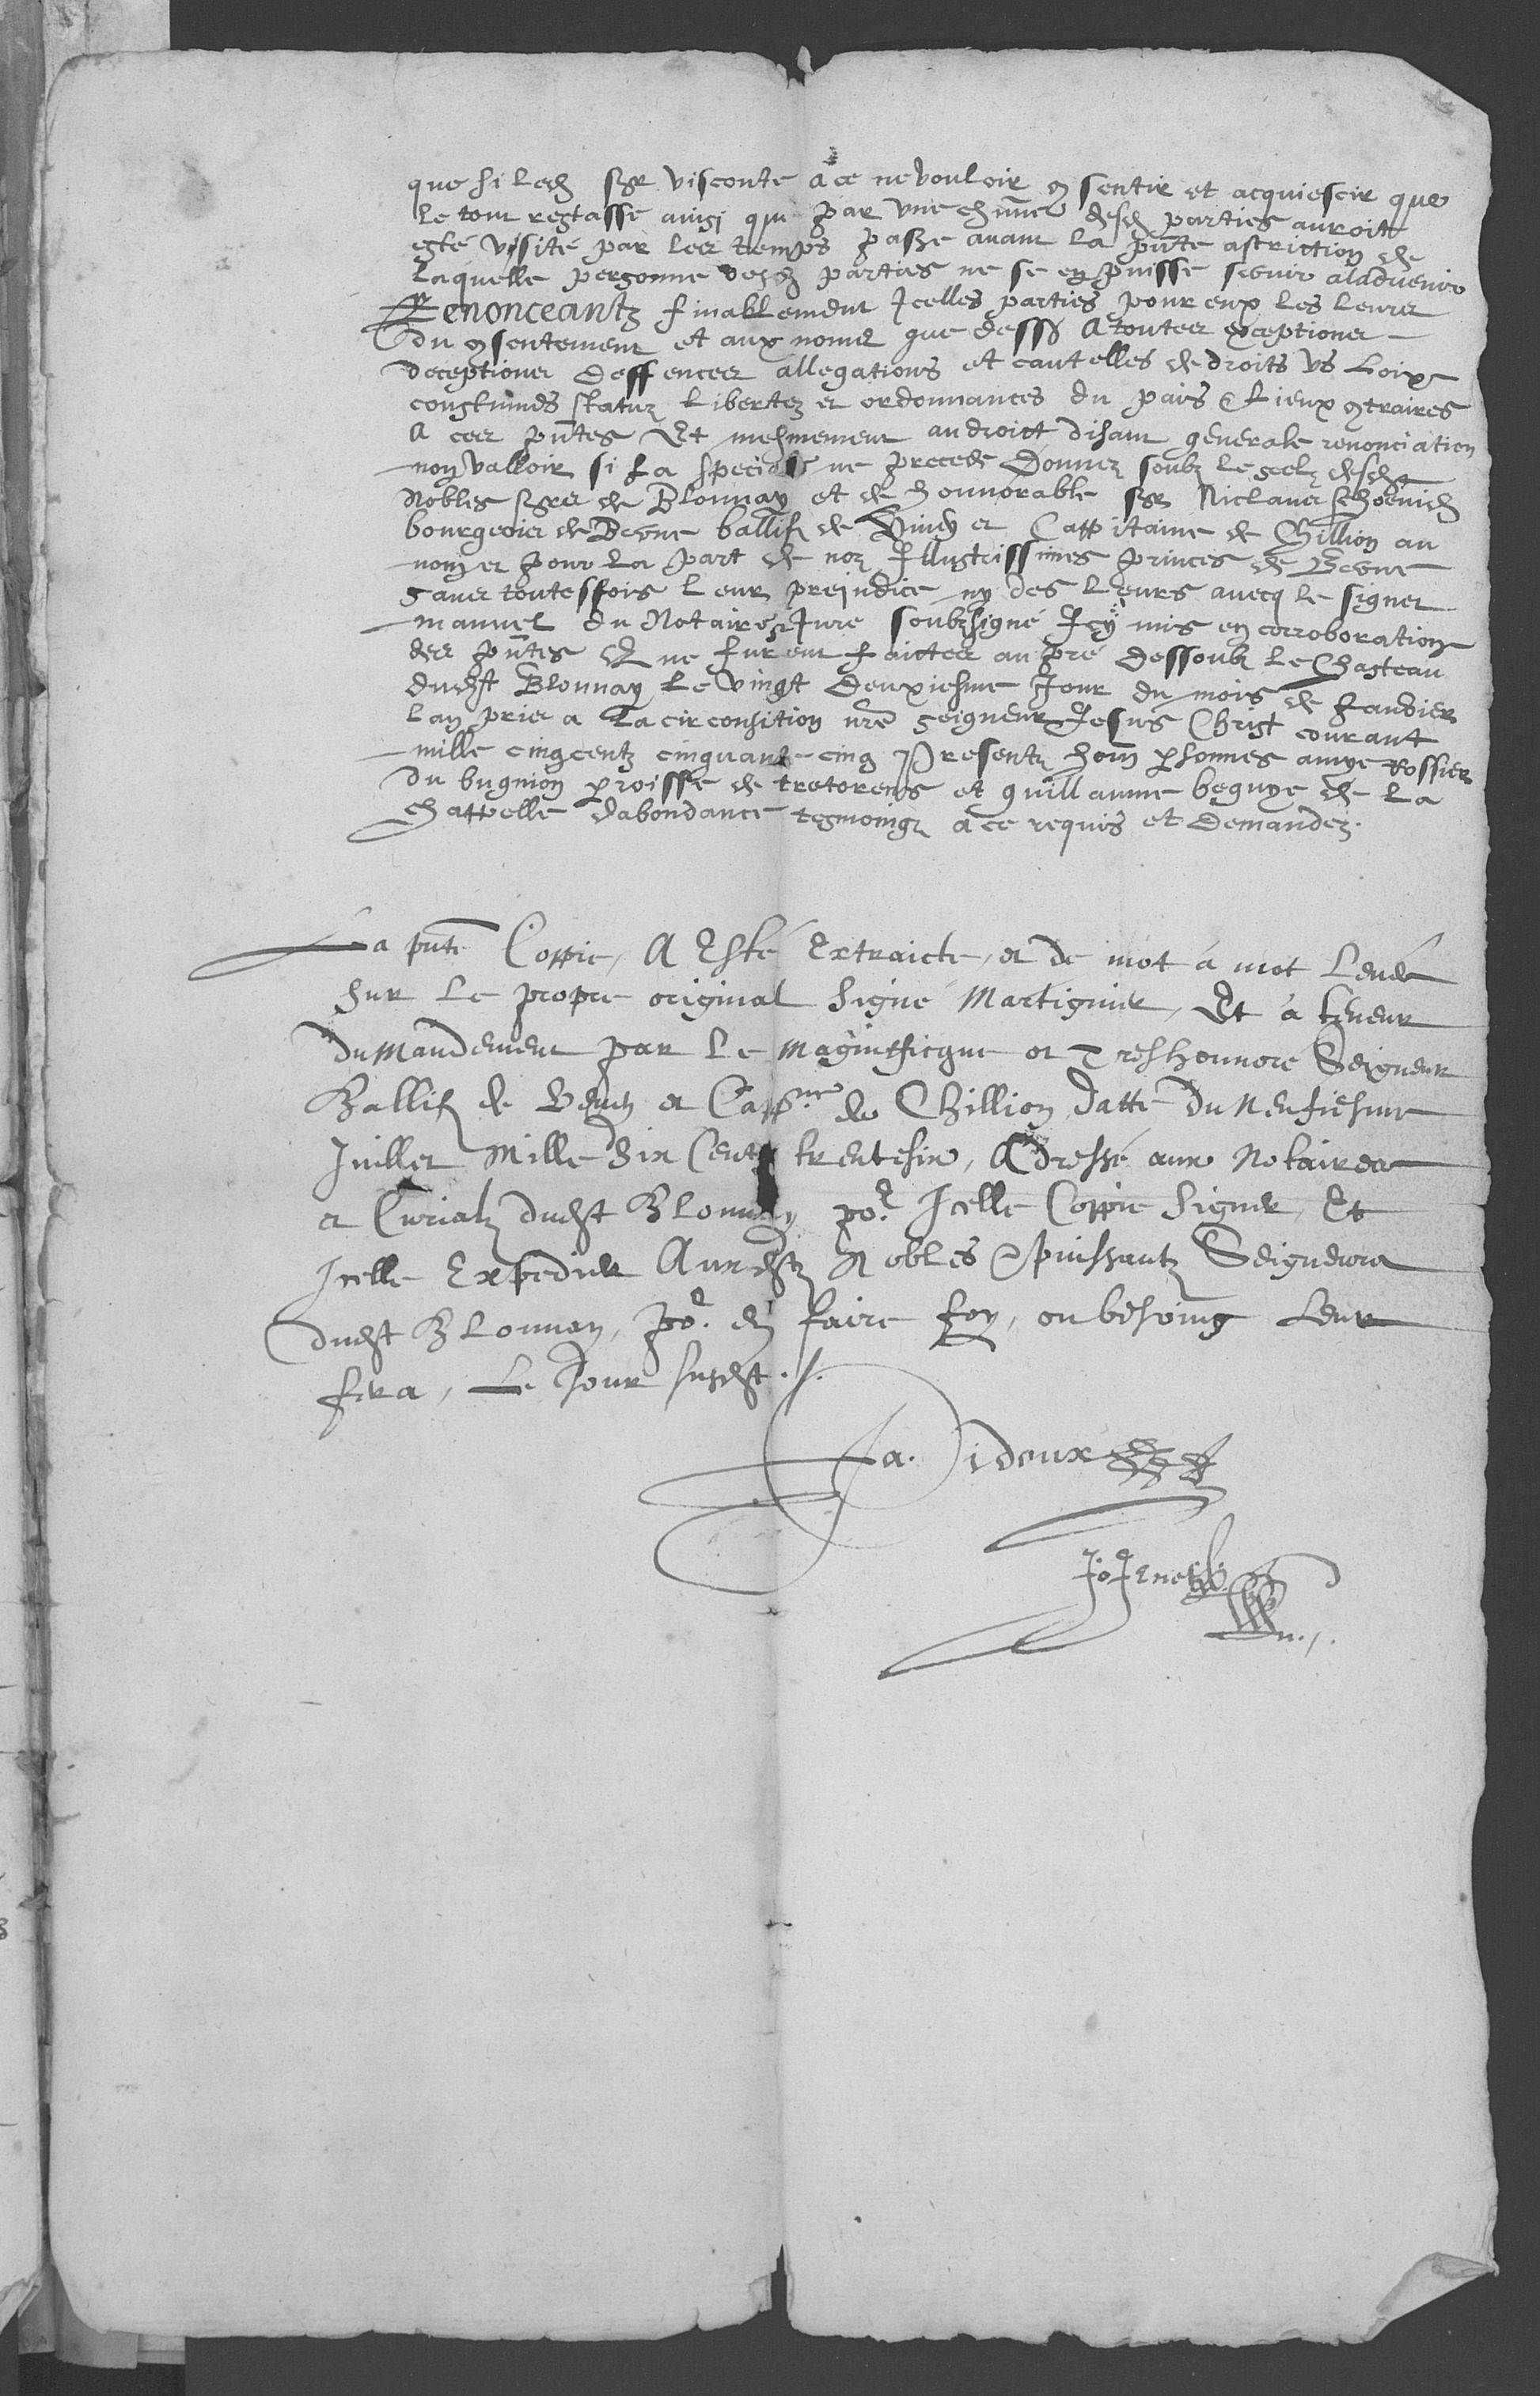 que si led sgr visconte a ce ne vouloir 9sentir et acquiescir que
le tout restasse ainsi que par une chūne desd parties auroit
esté visité par les temps passe avant la pñte astriction de
laquelle personne desd parties ne se en puisse servir aladvenir
Renonceantz finablement Icelles parties pour eux les leurs
du 9sentement et aux noms que dessʒ A toutes exceptions
deceptions deffences allegations et cautelles de droits us Loix
coustumes statuz libertez et ordonnances du pais & lieux 9traires
A ces pñtes Et mesmement au droict disant generale renonciation
non valloir si la speciale ne precede Donnez soubz le seelz desdt
Nobles sgrs de Blonnay et de honnorable sgr Niclaus
bourgeois de Berne ballif de Vivey et Cappitaine de Chillion au
nom et pour la part de noz Illustrissimes princes de Berne
saner toutesfois leur prejudice ny des leurs avecq le signet
manuel du Notaire Jure soubzsigné Icy mis en corroboration
des pñtes Que furent faictes au pré dessoubz le Chasteau
dudt Blonnay le vingt deuxiesme Jour du mois de Janvier
lan pris a la circonsition nre seigneur Jesus Christ courant
mille cinq centz cinquante-cinq Presentz hom psonnes Rossier
du bugnion proisse de tretorens et guillaume beguye de la
chappelle dabondance tesmoingz a ce requis et Demandez.
La pnte Coppie, A Esté Extraicte, et de mot á mot levée
sur le propre original signé Martignier, Et á teneur
du Mandement par le Magnifficque et Treshonnoré Seigneur
Ballif de Vevey et Cappne de Chillion, datté du Neufiesme
Juillet Mille Six Centz trentesix, Adressé aux Notaires
et Curialz dudt Blonnay por. Icelle Coppie signer, Et
Icelle Expedier Auxdtz Nobles & puissantz Seigneurs
dudt Blonnay, por. en faire foy, ou besoing leur
fera, Le Jour susdt ./.
Ja. Didoux